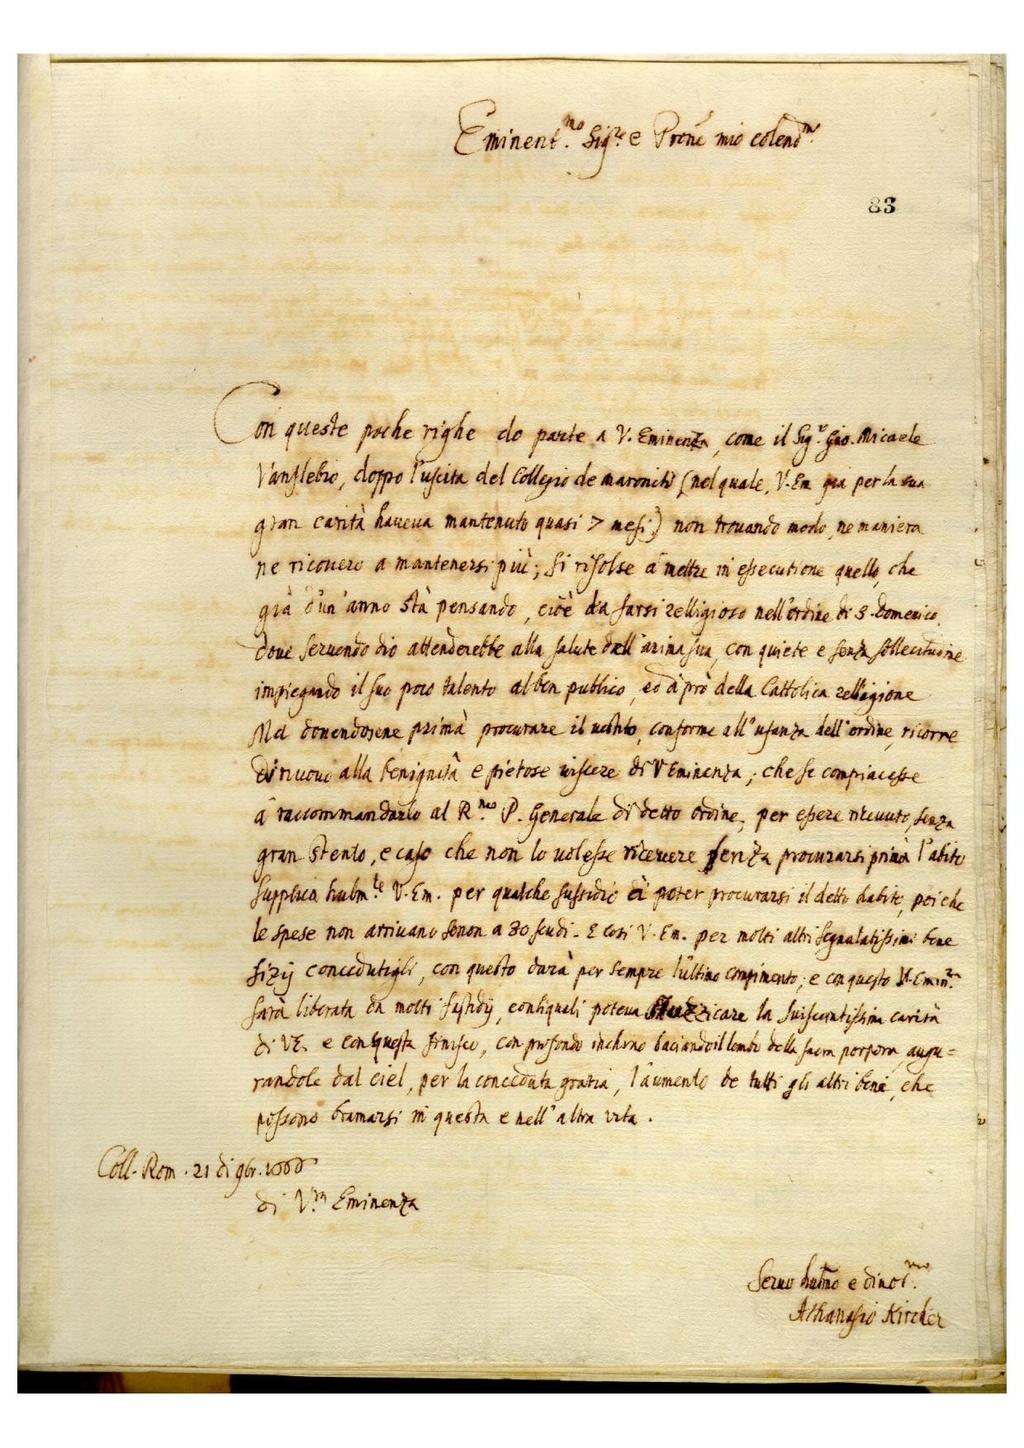 Eminent.mo Sig.re e Prone mio colend.mo
83
Con queste poche righe do parte a V. Eminenza, come il Sig.r Gio. Micaele
Vanslebio, doppo l'uscita del Collegio de maroniti (nel quale, V. Em già per la sua
gran carità haveva mantenuto quasi 7 mesi) non trovando modo, ne maniera
ne ricovero a mantenersi più; si risolse à mettre in essecutione quello, che
già d'un'anno stà pensando, cioè da farsi relligioso nell'ordine di S. Domenico,
dove servendo dio attenderebbe alla salute dell'anima sua, con quiete e senza sollecitudine
impiegando il suo poco talento al ben publico, ed à prò della Cattolica relligione
Ma dovendosene primà procurare il vestito, conforme all'usanza dell'ordine, ricorre
di nuovo alla benignità e pietose viscere di V Eminenza, che se compiacesse
à raccommandarlo al R.mo P. Generale di detto ordine, per essere ricevuto, senza
gran stento, e caso che non lo volesse ricevere senza procurarsi primà l'abito
supplica hubm.te V. Em. per qualche sussidio di poter procurarsi il detto habito, poi che
le spese non arrivano senon a 30 scudi. E così V. Em. per molti altri segnalatissimi bene
fizij conceduti gli, con questo darà per sempre l'ultimo compimento; e con questo V. Emin.za
sarà liberata da molti fastidij, con li quali poteva stuzzicare la suiscentissima carità
di VE. e con questa finisco, con profondo inchino baciando il lembo della sacra porpora, augu=
randole dal ciel, per la conceduta gratia, l'aumento de tutti gli altri beni, che
possono bramarsi in questa e nell'altra vita.
Coll. Rom. 21 di 9br. 1666
di V.ra Eminenza
Servo hubmo e divot.mo
Athanasio Kircher